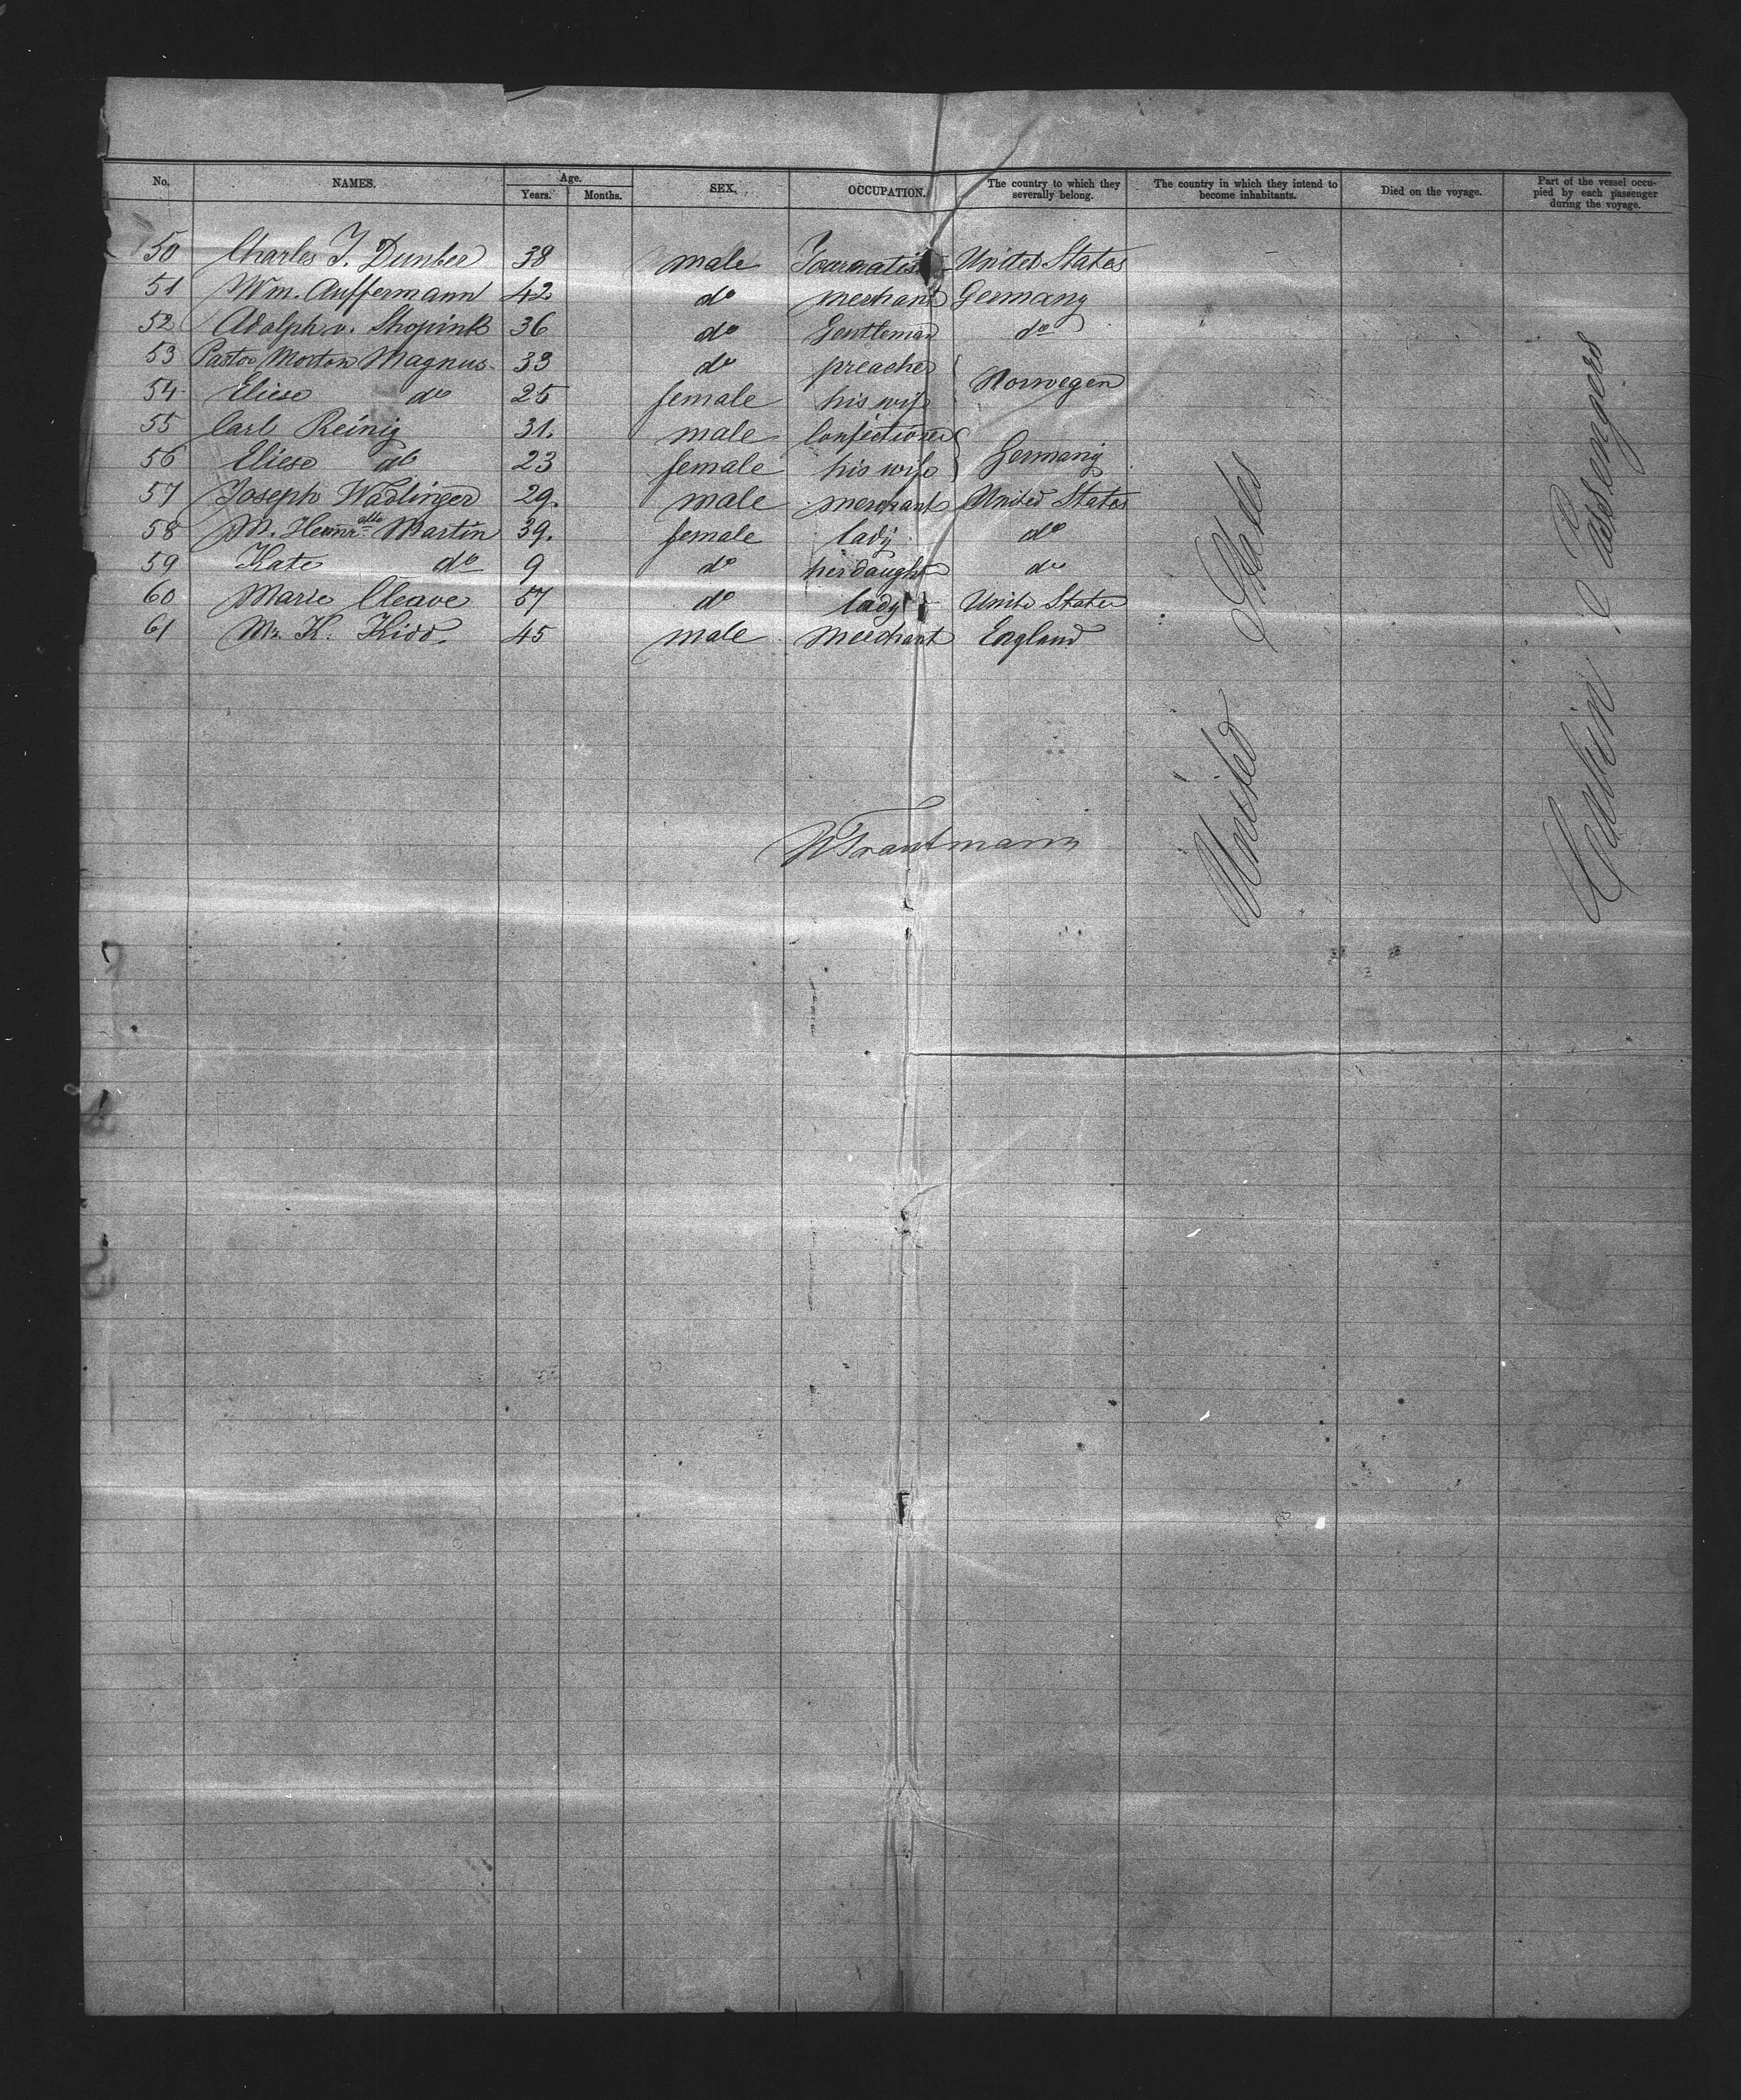 No. NAMES. Age. Years. Months. SEX. OCCUPATION. The country to which they severally belong. The country in which they intend to become inhabitants. Died on the voyage. Part of the vessel occupied by each passenger during the voyage.
50 Charles J. Dunber 38 male United States
51 Wm. Auffermann 42 do merchant Germany
52 Adolph v. Shopink 36 do Gentleman do
53 Pastor Morton Magnus 33 do preacher Norwegen
54 Eliese do 25 female his wife
55 Carl Reinig 31. male Confectioner Germany
56 Eliese do 23 female his wife
57 Joseph Wadlinger 29. male merchant United States
58 M. Martin 39. female lady do
59 Kate do 9 do her daught do
60 Marie Cleave 57 do lady United States
61 Mr. K. Kidd. 45 male Merchant England
United States
Cabin Passengers
W Trautmann